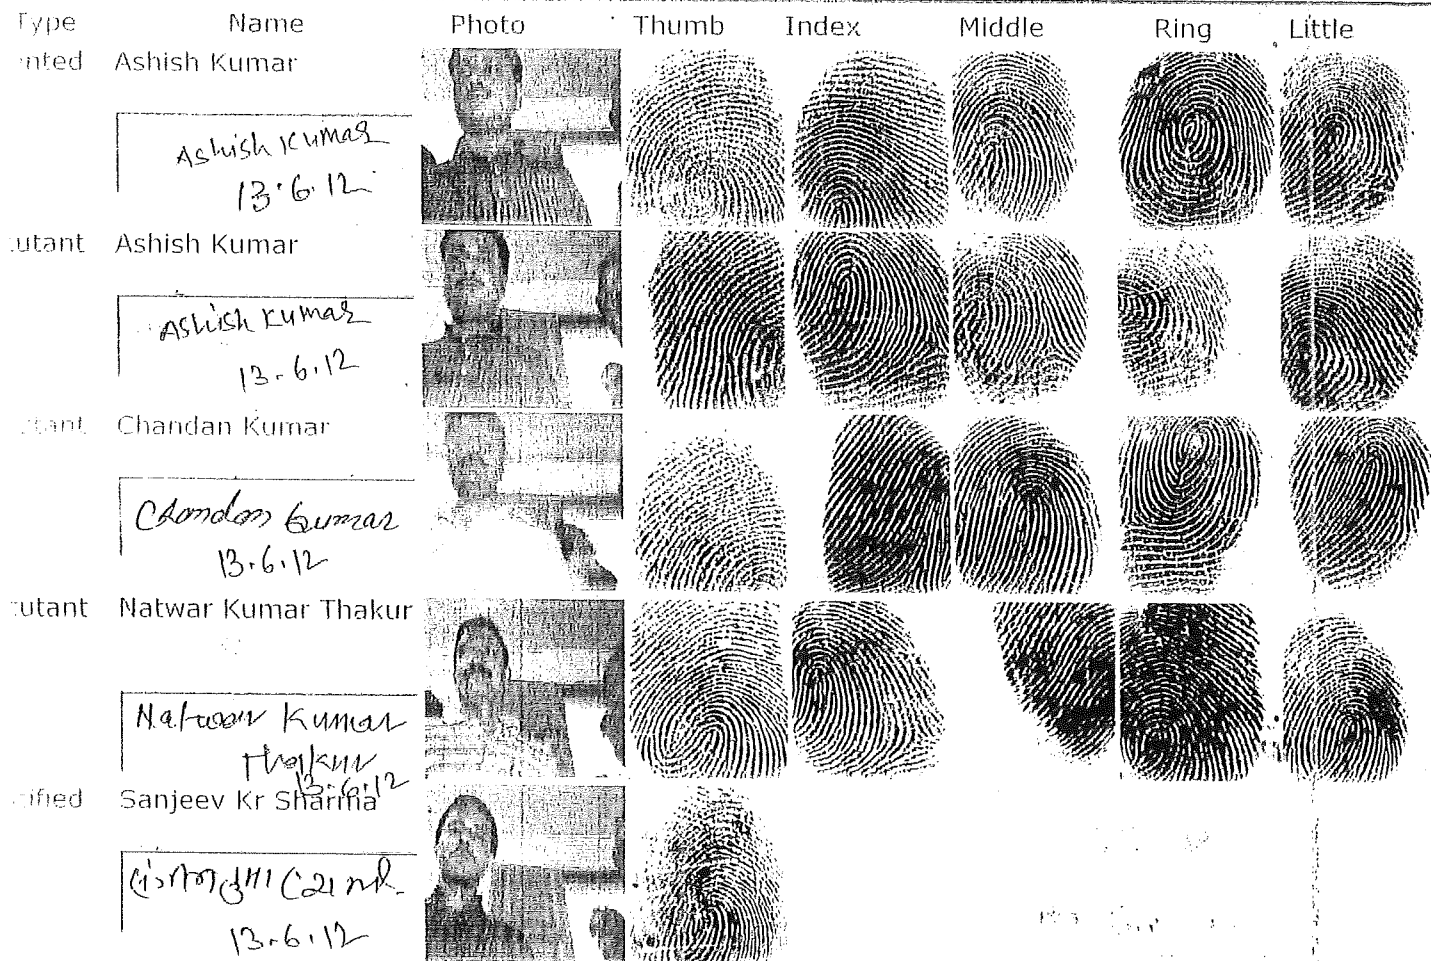 Type Name Photo Thumb Index Middle Ring Little
nted Ashish Kumar
Ashish Kumar
13.6.12
utant Ashish Kumar
Ashish Kumar
13.6.12
tant Chandan Kumar
Chandan Kumar
13.6.12
utant Natwar Kumar Thakur
Natwar Kumar
Thakur
13.6.12
ified Sanjeev Kr Sharma
13.6.12